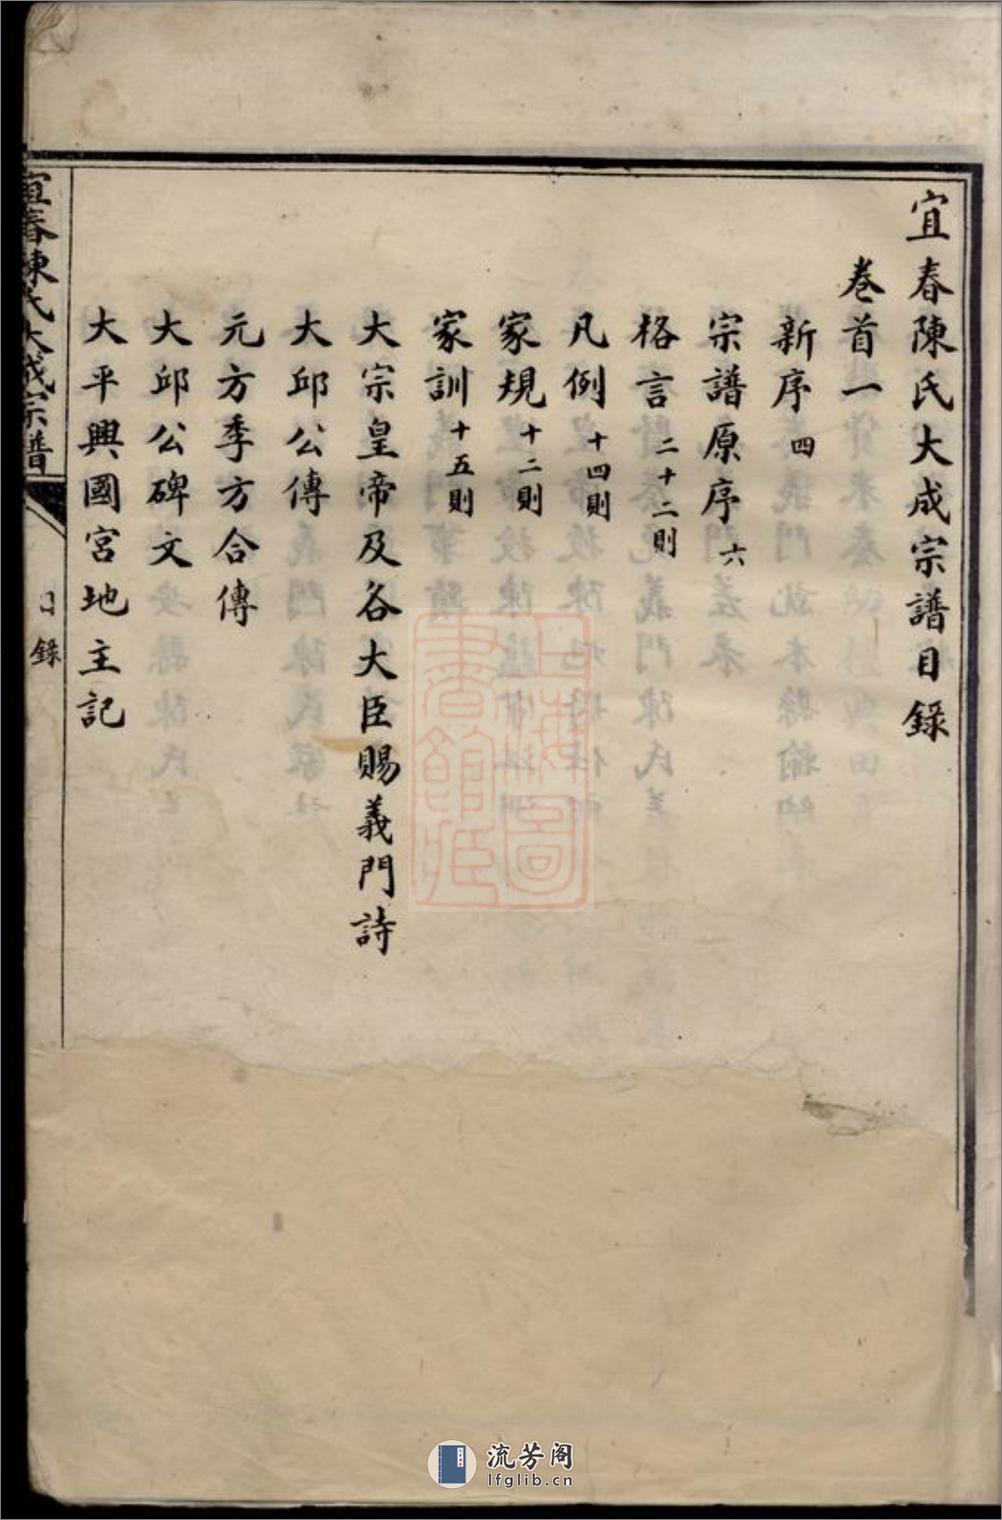 宜春陳氏大成宗譜目錄
卷首一
新序四
宗譜原序六
格言二十二則
凡例十四則
家規十二則
家訓十五則
大宗皇帝及各大臣賜義門詩
大邱公傳
元方季方合傳
大邱公碑文
大平興國宮地主記
宜春陳氏大成宗譜
目錄
上海圖書館藏
流芳阁
lfglib.cn